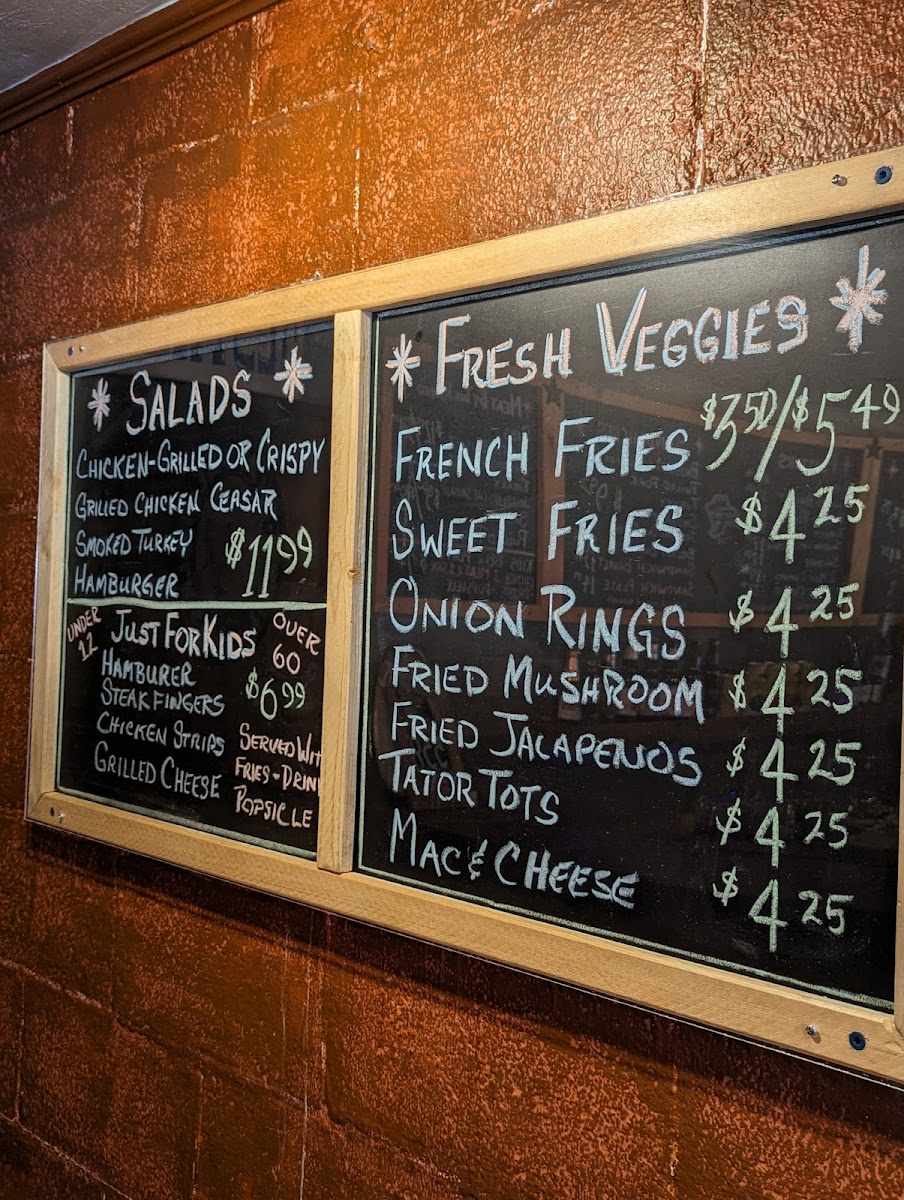 SALADS
CHICKEN-GRILLED OR CRISPY
GRILLED CHICKEN CEASAR
SMOKED TURKEY
HAMBURGER
$11.99
UNDER 12
JUST FOR KIDS
OVER 60
HAMBURER
STEAK FINGERS
CHICKEN STRIPS
GRILLED CHEESE
$6.99
SERVED WIT
FRIES-DRIN
POPSICLE
FRESH VEGGIES
FRENCH FRIES $3.50/$5.49
SWEET FRIES $4.25
ONION RINGS $4.25
FRIED MUSHROOM $4.25
FRIED JALAPENOS $4.25
TATOR TOTS $4.25
MAC & CHEESE $4.25